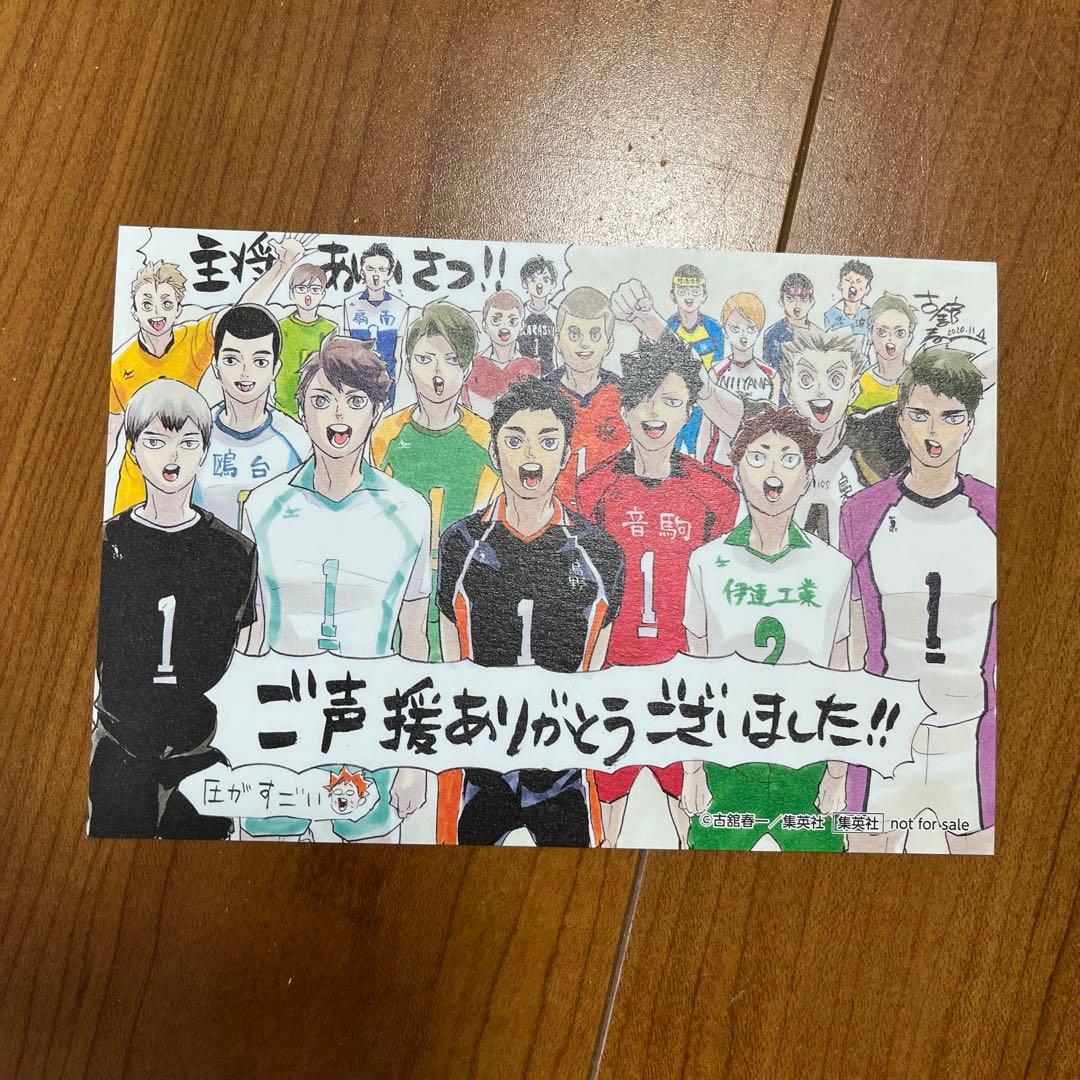 主将 あいさつ!!
古舘春一
2020.11
扇南
鴎台
烏野
音駒
伊達工業
NIIYAMA
1
1
1
1
1
1
2
1
ご声援ありがとうございました!!
圧がすごい
©古舘春一/集英社 集英社 not for sale